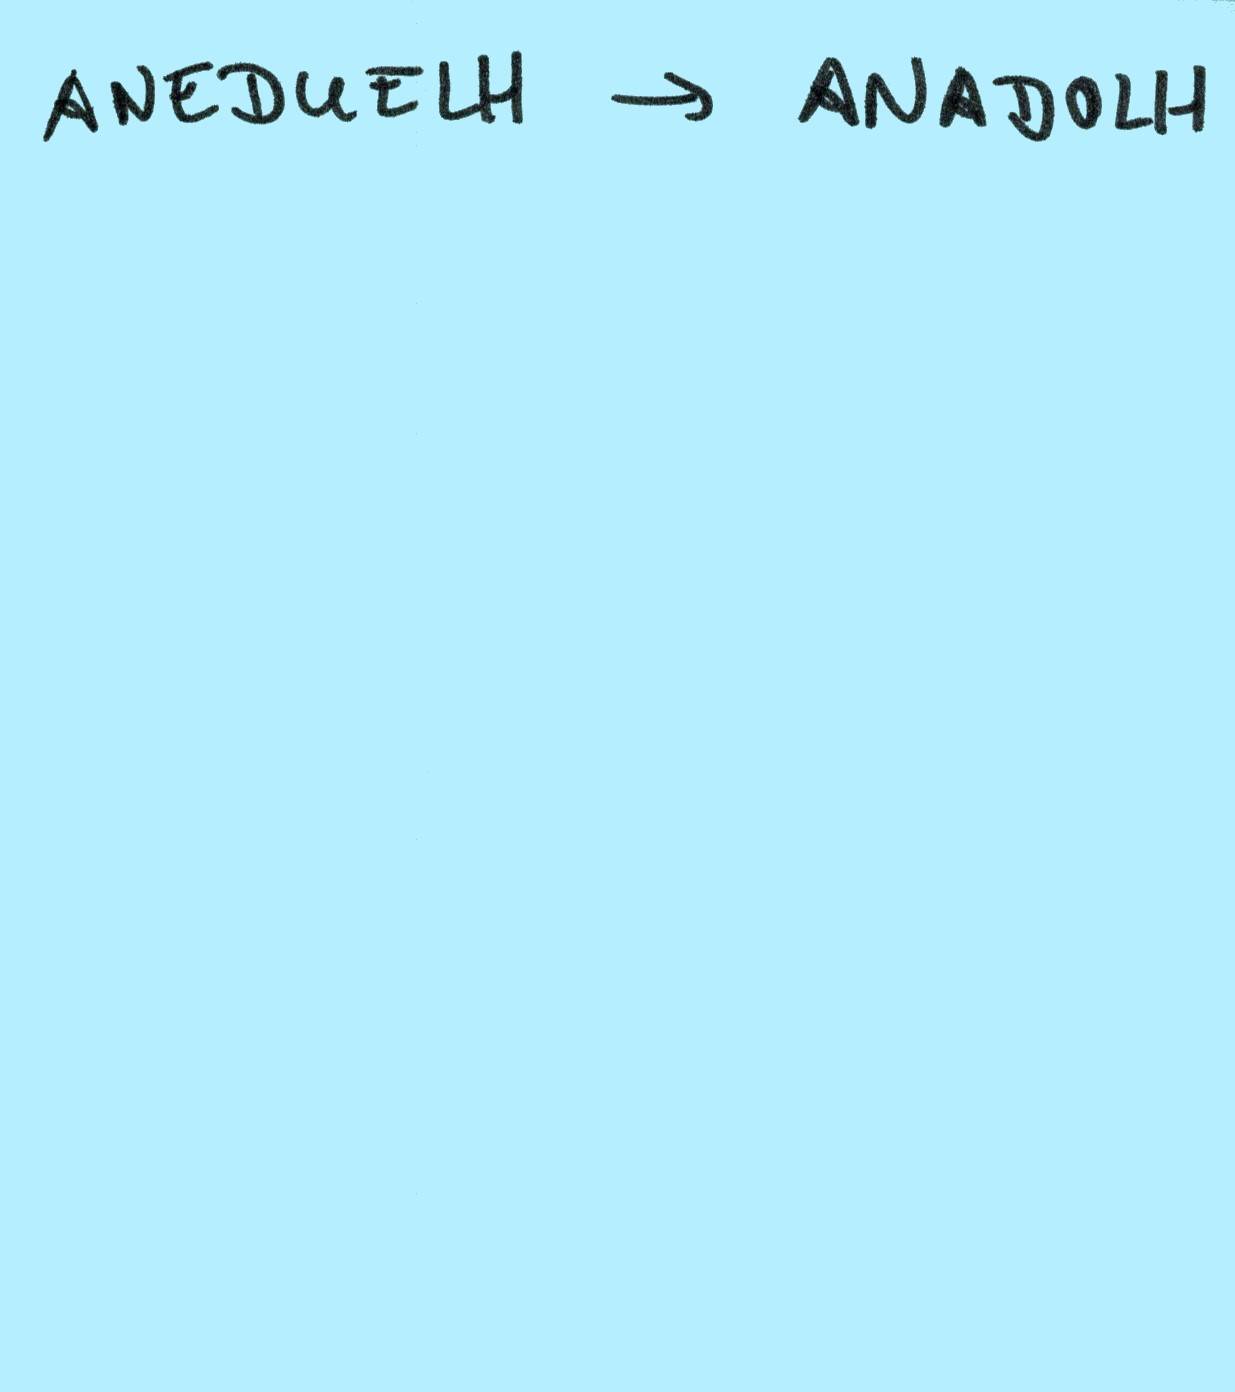 ANEDUELH → ANADOLH